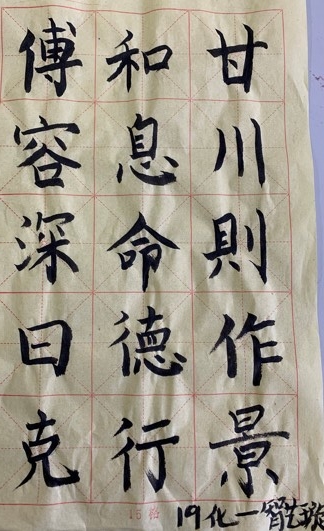 甘川則作景
和息命德行
傅容深曰克
19化一